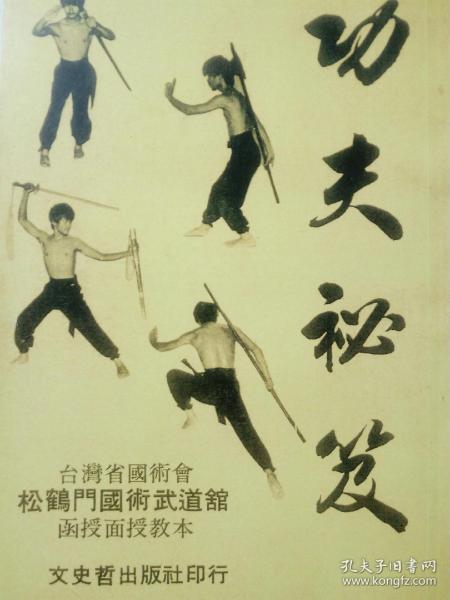 功夫祕笈
台灣省國術會
松鶴門國術武道舘
函授面授教本
文史哲出版社印行
孔夫子旧书网
www.kongfz.com